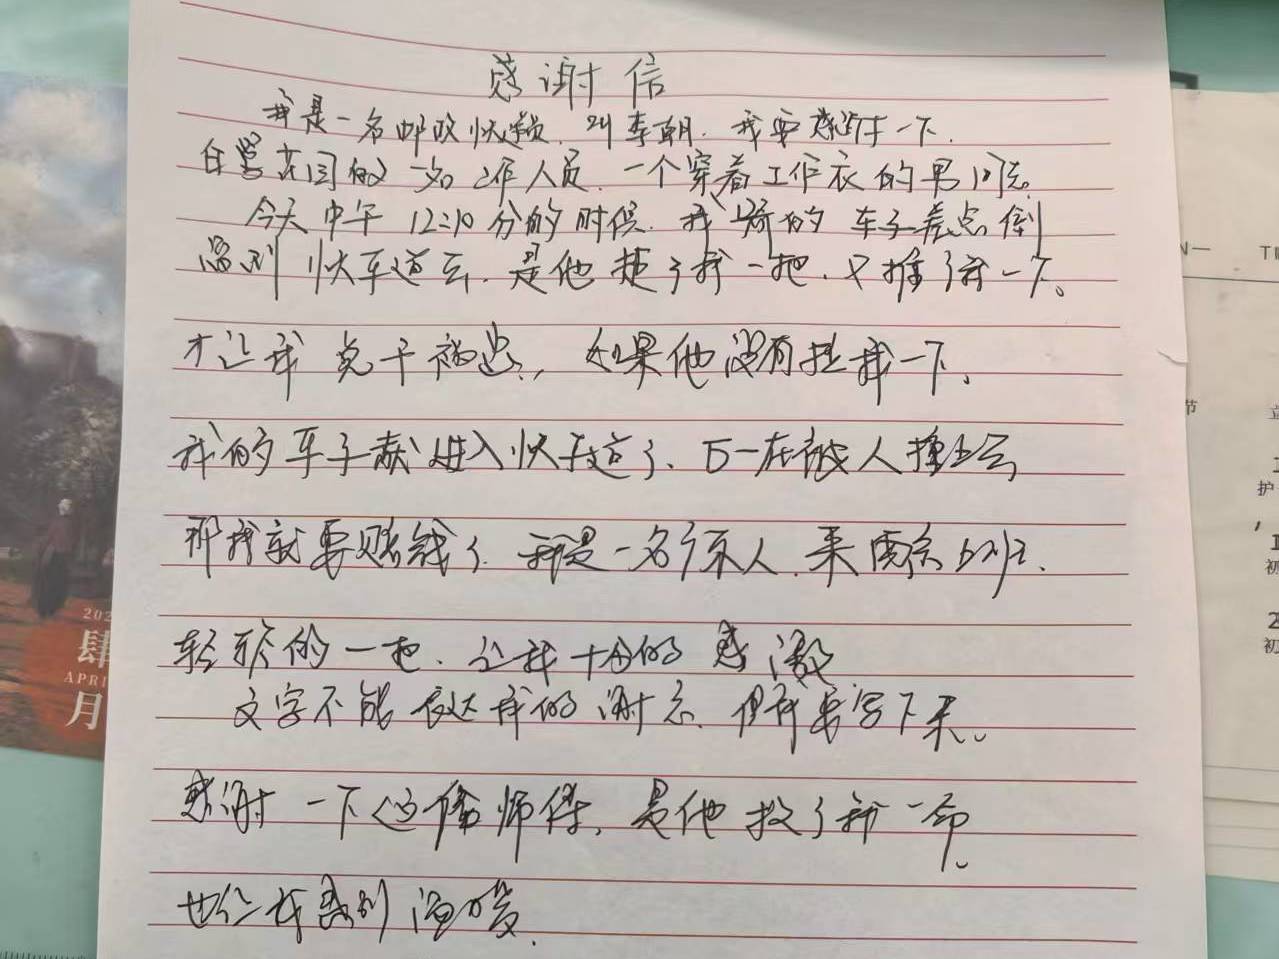 感谢信
我是一名邮政快递员,叫李朝.我要感谢一下.
自器花园的一名工作人员.一个穿着工作衣的男同志.
今天中午12:10分的时候.我骑的车子差点倒
溜到快车道去.是他拽了我一把.又推了我一下。
才让我免于祸患.,如果他没有拉我一下、
我的车子就进入快车道了、万一在被人撞上去
那我就要赔钱了.我是一名穷人.来上班.
轻轻的一把.让我十分的感激
文字不能表达我的谢意.但我要写下来、
感谢一下这个师傅,是他救了我一命、
也让我感到温暖.
肆
APRI
月
202
N一
节
护
初
2
初